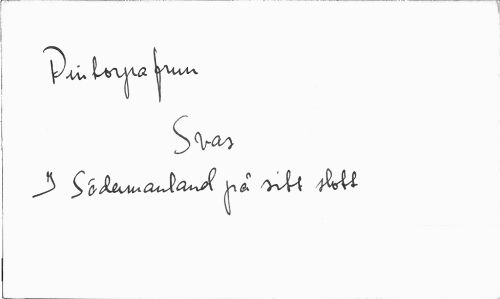 Pintorpafrun
Svar
I Södermanland på sitt slott